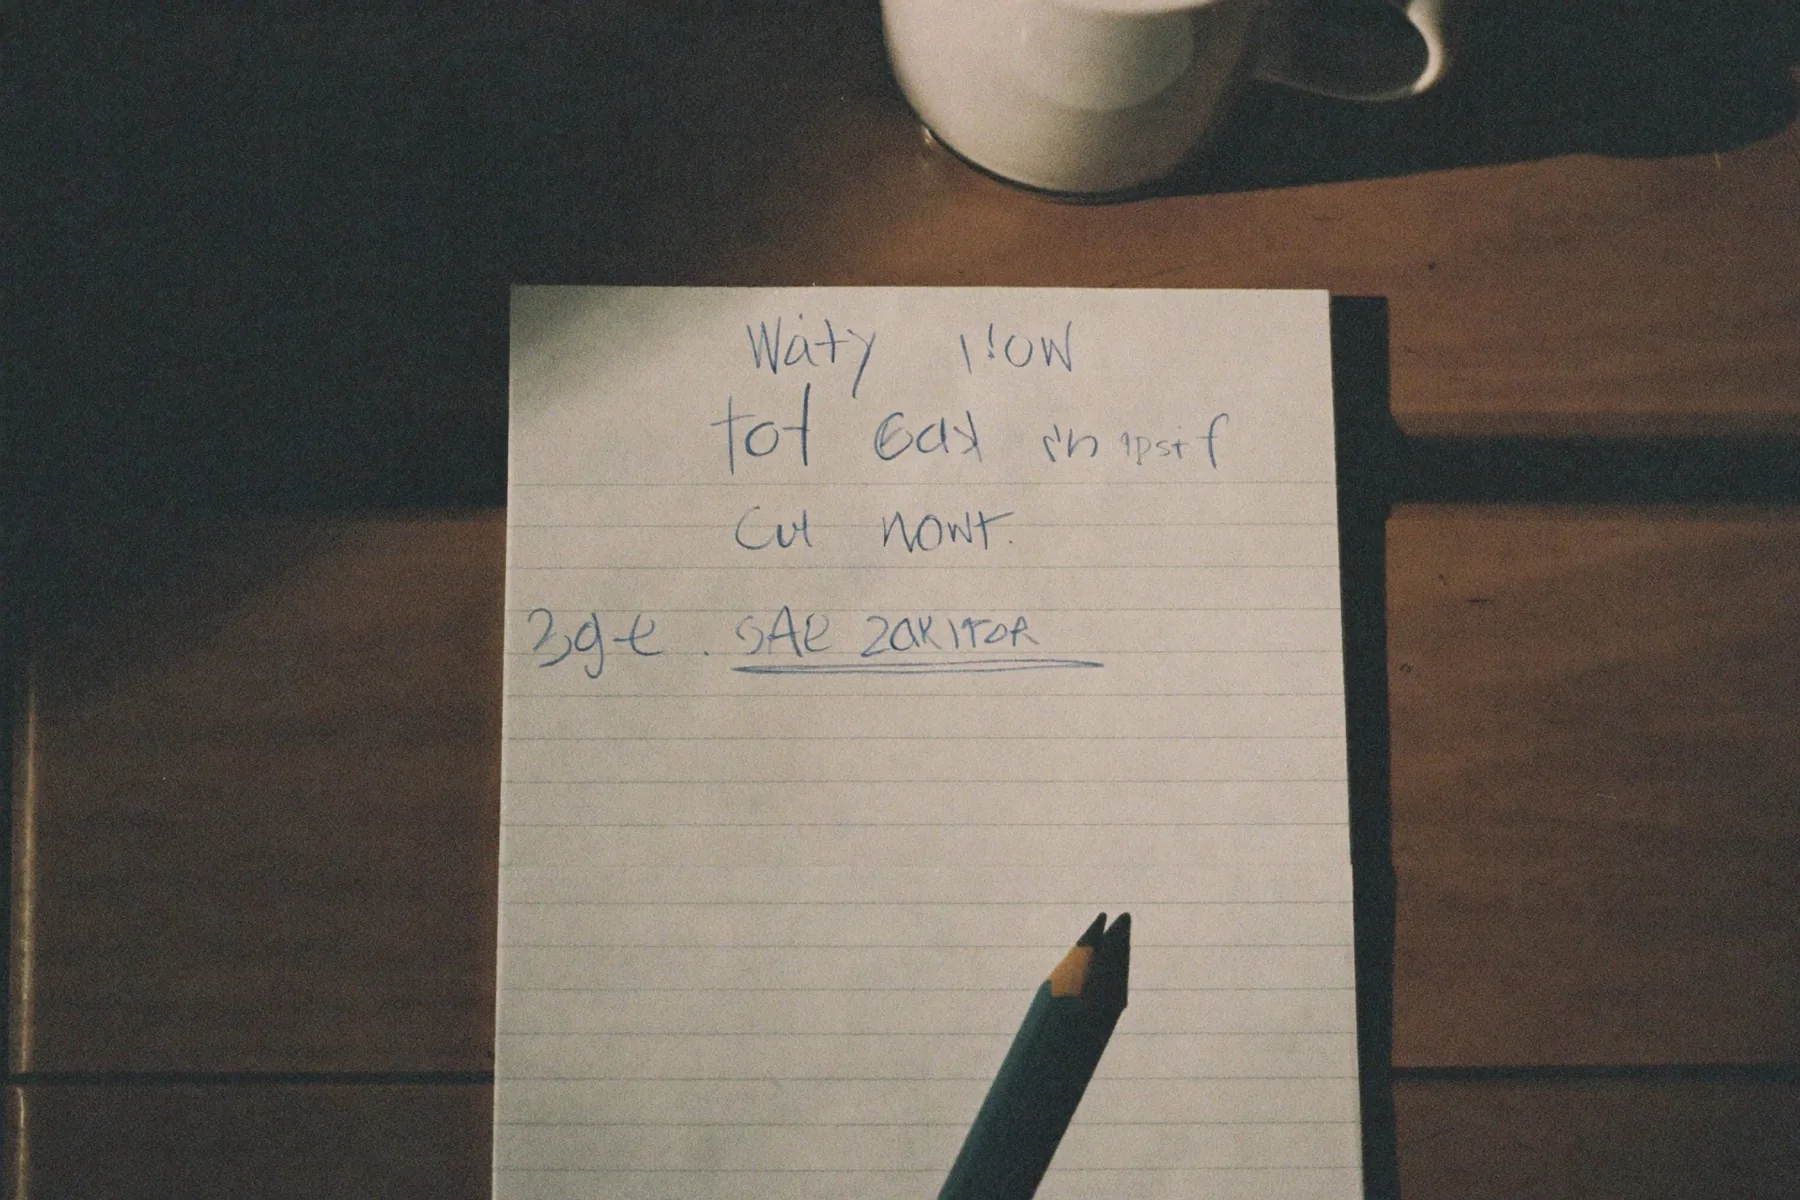 Waty I'OW
tot Gax in ipsif
Cut NOWT.
3ge. SAE ZAKITOR